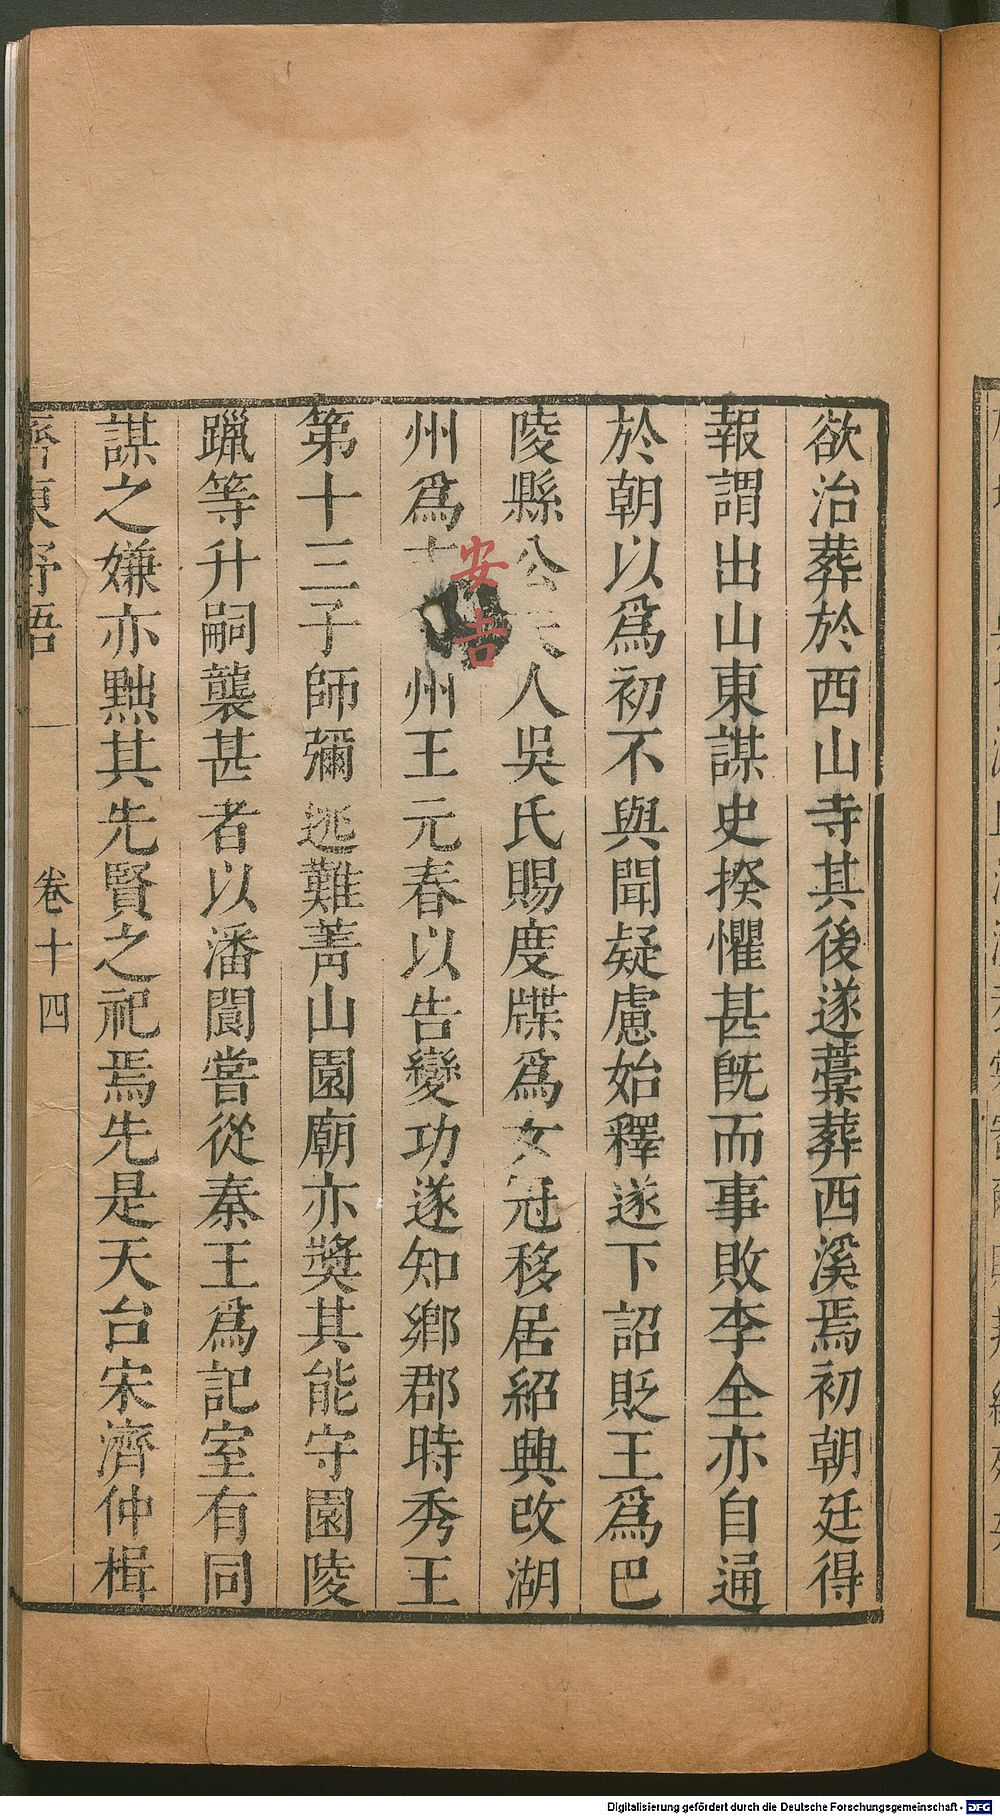 欲治葬於西山寺其後遂藁葬西溪焉初朝廷得
報謂出山東謀史揆懼甚旣而事敗李全亦自通
於朝以爲初不與聞疑慮始釋遂下詔貶王爲巴
陵縣公夫人吳氏賜度牒爲女冠移居紹興改湖
州爲州王元春以告變功遂知鄉郡時秀王
安吉
第十三子師彌逃難菁山園廟亦獎其能守園陵
躐等升嗣襲甚者以潘閬嘗從秦王爲記室有同
謀之嫌亦黜其先賢之祀焉先是天台宋濟仲楫
齊東野語
卷十四
Digitalisierung gefördert durch die Deutsche Forschungsgemeinschaft - DFG